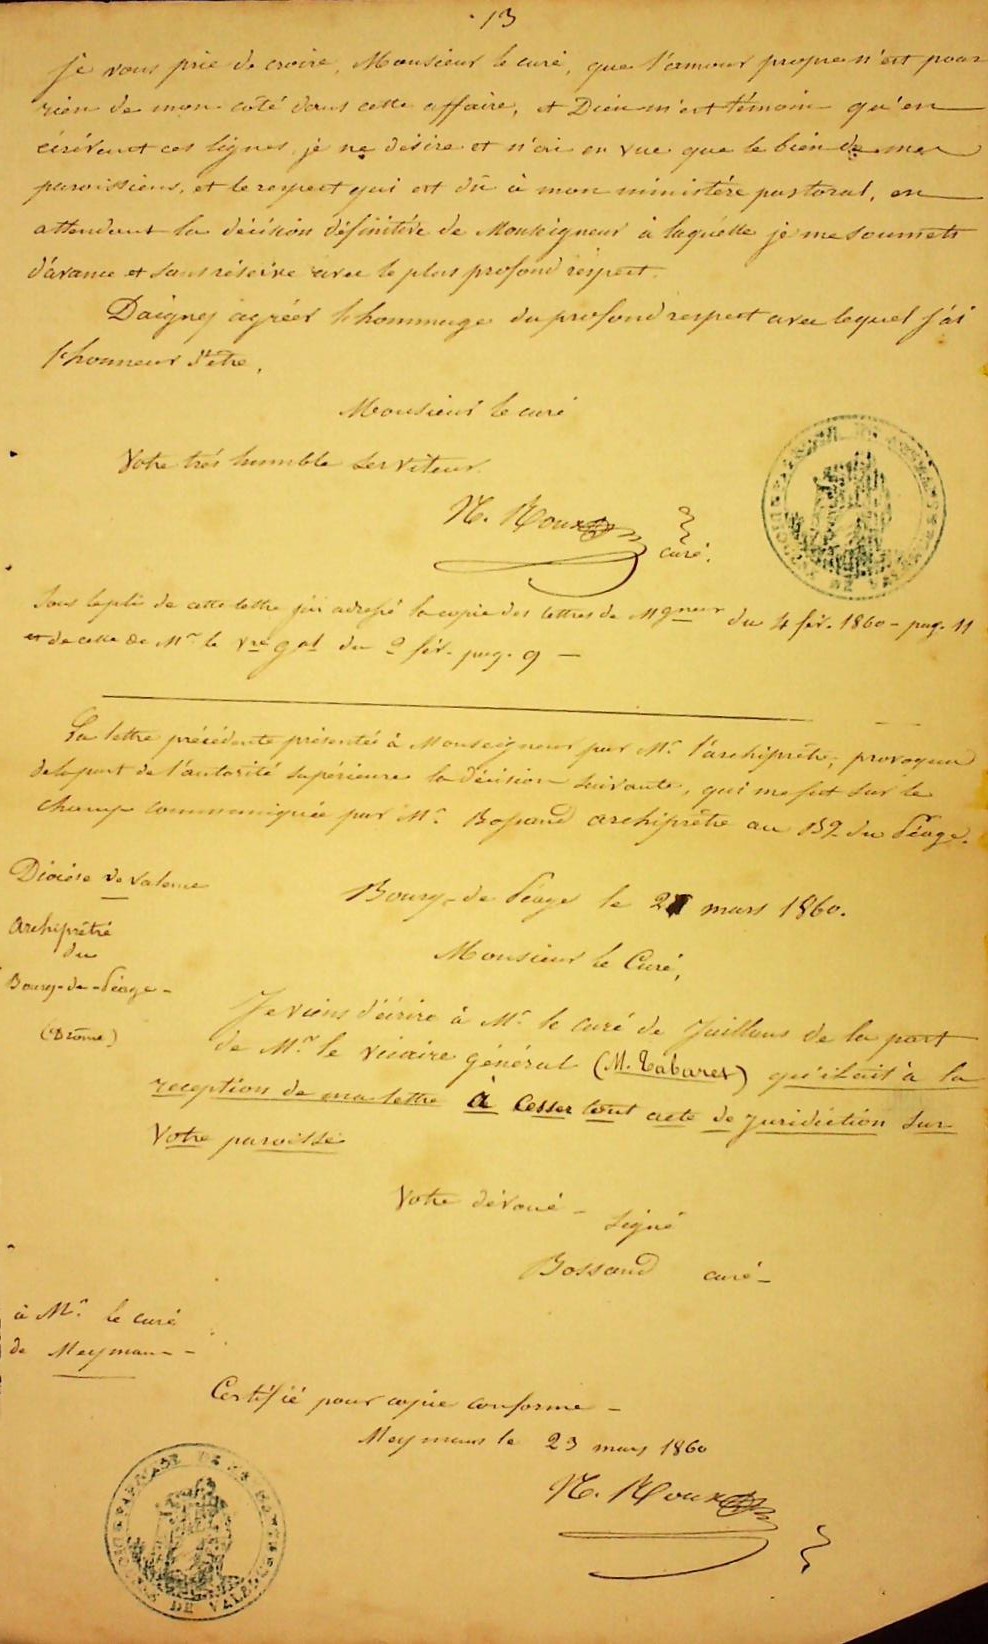 13
Je vous prie de croire, Monsieur le curé, que l'amour propre n'est pour
rien de mon côté dans cette affaire, et Dieu m'est témoin qu'en
écrivant ces lignes je ne désire et n'ai en vue que le bien de mes
paroissiens, et le respect qui est dû à mon ministère pastoral, en
attendant la décision définitive de Monseigneur à laquelle je me soumets
d'avance et sans réserve avec le plus profond respect.
Daignez agréer l'hommage du profond respect avec lequel j'ai
l'honneur d'être,
Monsieur le curé
Votre très humble serviteur.
N. Roux
curé.
Sous le pli de cette lettre j'ai adressé la copie des lettres de Mgneur du 4 fév. 1860 - pag. 11
et de celle de Mr le vre gal du 2 fév. pag. 9 -
La lettre précédente présentée à Monseigneur par Mr. l'archiprêtre, provoqua
de la part de l'autorité supérieure la décision suivante, qui me fut sur le
champ communiquée par Mr. Bossand archiprêtre au Bg du Péage.
Diocèse de Valence
Archiprêtré
du
Bourg-de-Péage -
(Drôme)
Bourg-de-Péage le 2 mars 1860.
Monsieur le Curé,
Je viens d'écrire à Mr le curé de Jaillans de la part
de Mr le vicaire général (M. Tabaret) qu'il ait à la
reception de ma lettre à cesser tout acte de juridiction sur
votre paroisse
Votre dévoué - signé
Bossand curé -
à Mr. le curé
de Meymans -
Certifié pour copie conforme -
Meymans le 23 mars 1860
N. Roux
DE VALENCE